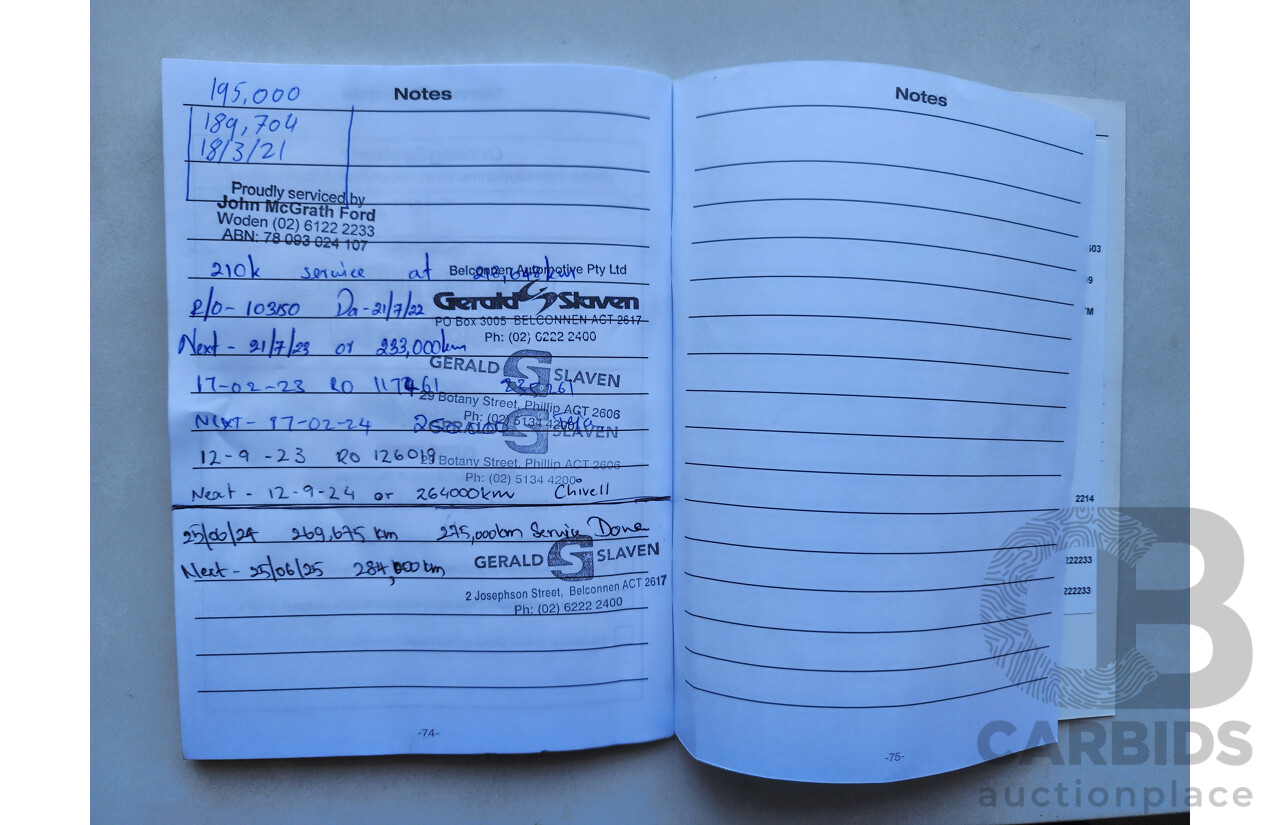 195,000
Notes
189,704
18/3/21
Proudly serviced by
John McGrath Ford
Woden (02) 6122 2233
ABN: 78 093 024 107
210k service at 218,048km
Belconnen Automotive Pty Ltd
R/O- 103150 Da-21/7/22
Gerald Slaven
PO Box 3005 BELCONNEN ACT 2617
Ph: (02) 6222 2400
Next - 21/7/23 or 233,000km
GERALD SLAVEN
17-02-23 RO 117461
29 Botany Street, Phillip ACT 2606
Ph: (02) 5134 4200
Next- 17-02-24
GERALD SLAVEN
12-9-23 RO 126019
29 Botany Street, Phillip ACT 2606
Ph: (02) 5134 4200
Next - 12-9-24 or 264000km Chivell
25/06/24 269,675 km 275,000km Service Done
GERALD SLAVEN
Next - 25/06/25 284,000 km
2 Josephson Street, Belconnen ACT 2617
Ph: (02) 6222 2400
-74-
Notes
-75-
2214
222233
222233
CB
CARBIDS
auctionplace